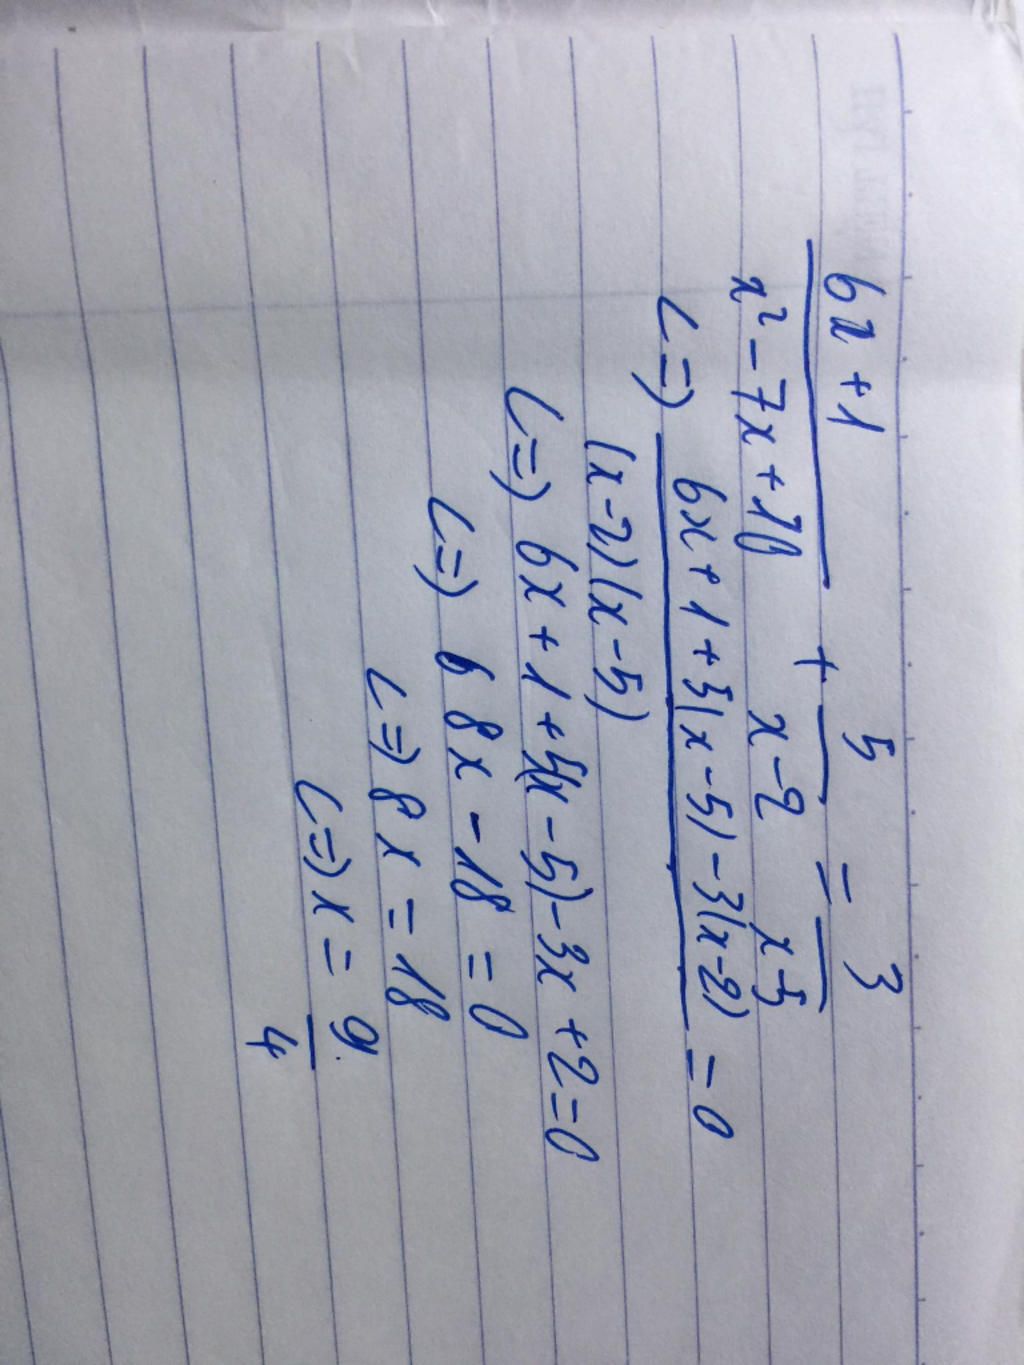 6x + 1 / x² - 7x + 10 + 5 / x - 2 = 3 / x - 5
<=> 6x + 1 + 5(x - 5) - 3(x - 2) / (x - 2)(x - 5) = 0
<=> 6x + 1 + 5(x - 5) - 3x + 2 = 0
<=> 6 8x - 18 = 0
<=> 8x = 18
<=> x = 9 / 4